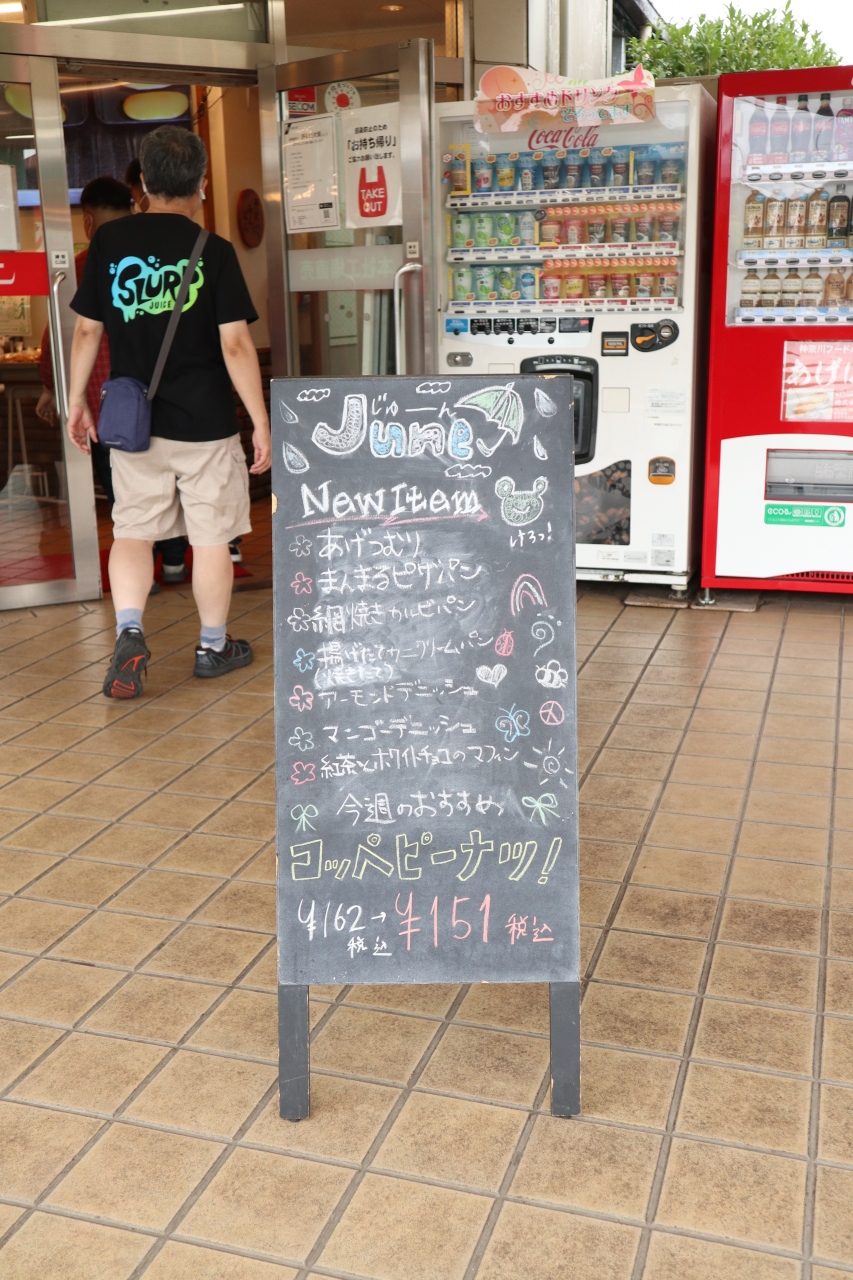 じゅーん
June
New Item
けろっ!
あげつむり
まんまるピザパン
網焼きカルビパン
揚げたてカニクリームパン
アーモンドデニッシュ
マンゴーデニッシュ
紅茶とホワイトチョコのマフィン
今週のおすすめ
コッペピーナツ!
¥162→¥151税込
税込
SLURP
JUICE
「お持ち帰り」
TAKE
OUT
おすすめドリンク
Coca-Cola
あげぱ
eco